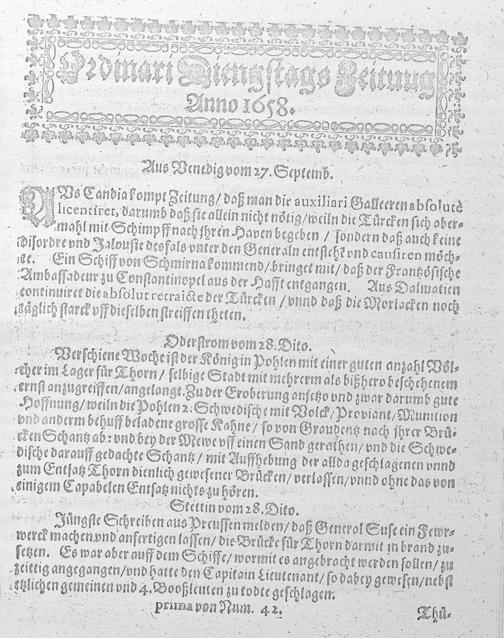 Ordinari Dengstags Zeitung
Anno 1658.
Aus Venedig vom 27. Septemb.
AUs Candia kompt Zeitung / daß man die auxiliari Galleeren absolutè
licentiret, darumb daß sie allein nicht nötig / weiln die Türcken sich aber-
mahl mit Schimpff nach jhren Haven begeben / sondern daß auch keine
disordre vnd Jalousie desfals vnter den Generaln entsteh? vnd causiren möch-
te. Ein Schiff von Schmirna kommend / bringet mit / daß der Französische
Ambassadeur zu Constantinopel aus der Hafft entgangen. Aus Dalmatien
continuiret die absolut retraicte der Türcken / vnnd daß die Morlacken noch
täglich starck vff dieselben streiffen theten.
Oderstrom vom 28. Dito.
Verschiene Woche ist der König in Pohlen mit einer guten anzahl Völ-
cker im Lager für Thorn / selbige Stadt mit mehrerm als bißhero beschehenem
ernst anzugreiffen / angelangt. Zu der Eroberung anjetzo vnd zwar darumb gute
Hoffnung / weiln die Pohlen 2. Schwedische mit Volck / Proviant / Munition
vnd anderm behuff beladene grosse Kahne / so von Graudentz nach jhrer Brü-
cken Schantz ab: vnd bey der Mewe vff einen Sand gerathen / vnd die Schwe-
dische darauff gedachte Schantz / mit Auffhebung der allda geschlagenen vnnd
zum Entsatz Thorn dienlich gewesener Brücken / verlassen / vnnd ohne das von
einigem Capabelen Entsatz nichts zu hören.
Stettin vom 28. Dito.
Jüngste Schreiben aus Preussen melden / daß General Suse ein Fewr-
werck machen vnd anfertigen lassen / die Brücke für Thorn darmit in brand zu-
setzen. Es war aber auff dem Schiffe / wormit es angebracht werden sollen / zu
zeittig angegangen / vnd hatte den Capitain Lieutenant / so dabey gewesen / nebst
etzlichen gemeinen vnd 4. Booßleuten zu todte geschlagen.
prima von Num. 42.
Thü-